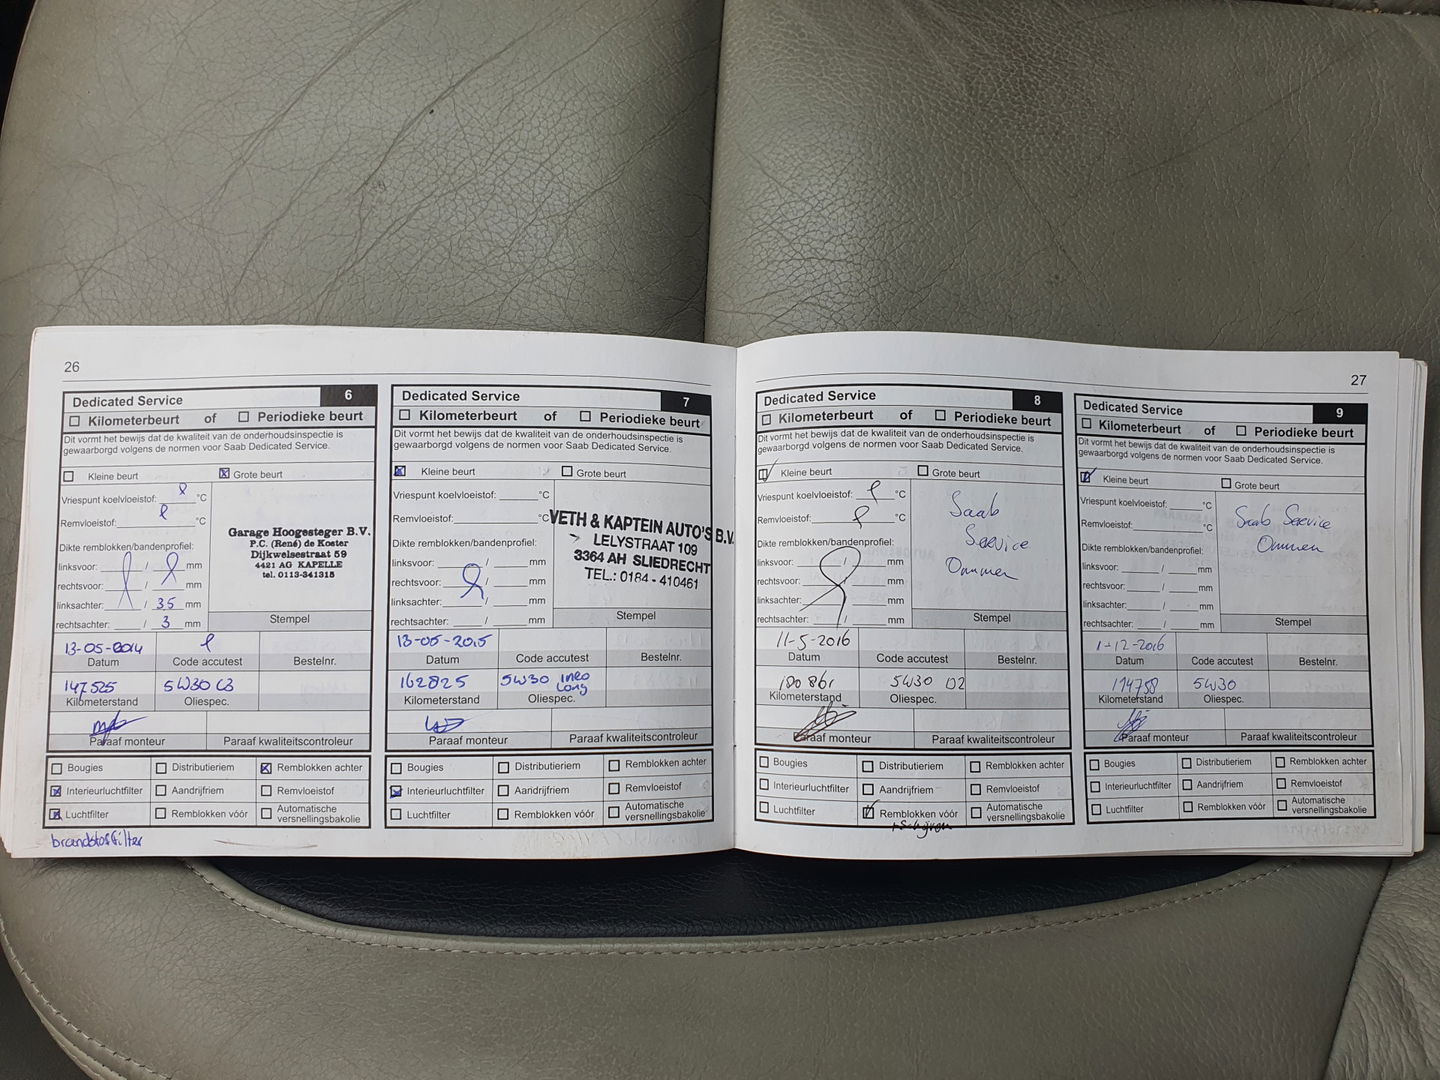 26
Dedicated Service 6
Kilometerbeurt of Periodieke beurt
Dit vormt het bewijs dat de kwaliteit van de onderhoudsinspectie is
gewaarborgd volgens de normen voor Saab Dedicated Service.
Kleine beurt Grote beurt
Vriespunt koelvloeistof: °C
Remvloeistof: °C
Garage Hoogesteger B.V.
P.C. (René) de Koster
Dijkwelsestraat 59
4421 AG KAPELLE
tel. 0113-341315
Dikte remblokken/bandenprofiel:
linksvoor: / mm
rechtsvoor: / mm
linksachter: / 3,5 mm
rechtsachter: / 3 mm
Stempel
13-05-2014
Datum Code accutest Bestelnr.
147525 5W30 C3
Kilometerstand Oliespec.
Paraaf monteur Paraaf kwaliteitscontroleur
Bougies Distributieriem Remblokken achter
Interieurluchtfilter Aandrijfriem Remvloeistof
Luchtfilter Remblokken vóór Automatische versnellingsbakolie
brandstoffilter
Dedicated Service 7
Kilometerbeurt of Periodieke beurt
Dit vormt het bewijs dat de kwaliteit van de onderhoudsinspectie is
gewaarborgd volgens de normen voor Saab Dedicated Service.
Kleine beurt Grote beurt
Vriespunt koelvloeistof: °C
Remvloeistof: °C
VETH & KAPTEIN AUTO'S B.V.
LELYSTRAAT 109
3364 AH SLIEDRECHT
TEL.: 0184 - 410461
Dikte remblokken/bandenprofiel:
linksvoor: / mm
rechtsvoor: / mm
linksachter: / mm
rechtsachter: / mm
Stempel
13-05-2015
Datum Code accutest Bestelnr.
162825 5W30 ineo
Long
Kilometerstand Oliespec.
Paraaf monteur Paraaf kwaliteitscontroleur
Bougies Distributieriem Remblokken achter
Interieurluchtfilter Aandrijfriem Remvloeistof
Luchtfilter Remblokken vóór Automatische versnellingsbakolie
27
Dedicated Service 8
Kilometerbeurt of Periodieke beurt
Dit vormt het bewijs dat de kwaliteit van de onderhoudsinspectie is
gewaarborgd volgens de normen voor Saab Dedicated Service.
Kleine beurt Grote beurt
Vriespunt koelvloeistof: °C
Remvloeistof: °C
Saab
Service
Ommen
Dikte remblokken/bandenprofiel:
linksvoor: / mm
rechtsvoor: / mm
linksachter: / mm
rechtsachter: / mm
Stempel
11-5-2016
Datum Code accutest Bestelnr.
180861 5W30 D2
Kilometerstand Oliespec.
Paraaf monteur Paraaf kwaliteitscontroleur
Bougies Distributieriem Remblokken achter
Interieurluchtfilter Aandrijfriem Remvloeistof
Luchtfilter Remblokken vóór Automatische versnellingsbakolie
+ schijven
Dedicated Service 9
Kilometerbeurt of Periodieke beurt
Dit vormt het bewijs dat de kwaliteit van de onderhoudsinspectie is
gewaarborgd volgens de normen voor Saab Dedicated Service.
Kleine beurt Grote beurt
Vriespunt koelvloeistof: °C
Remvloeistof: °C
Saab Service
Ommen
Dikte remblokken/bandenprofiel:
linksvoor: / mm
rechtsvoor: / mm
linksachter: / mm
rechtsachter: / mm
Stempel
1-12-2016
Datum Code accutest Bestelnr.
194758 5W30
Kilometerstand Oliespec.
Paraaf monteur Paraaf kwaliteitscontroleur
Bougies Distributieriem Remblokken achter
Interieurluchtfilter Aandrijfriem Remvloeistof
Luchtfilter Remblokken vóór Automatische versnellingsbakolie